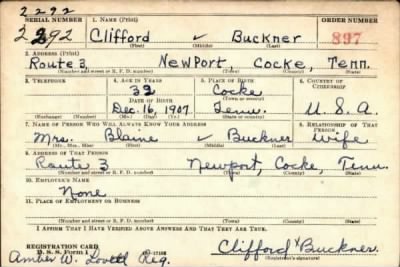 2292
SERIAL NUMBER 1. NAME (Print) ORDER NUMBER
2292 Clifford ✓ Buckner 897
(First) (Middle) (Last)
2. ADDRESS (Print)
Route 3, Newport, Cocke, Tenn.
(Number and street or R. F. D. number) (Town) (County) (State)
3. TELEPHONE 4. AGE IN YEARS 5. PLACE OF BIRTH 6. COUNTRY OF CITIZENSHIP
32 Cocke
(Town or county)
DATE OF BIRTH
Dec. 16, 1907 Tenn. U. S. A.
(Exchange) (Number) (Mo.) (Day) (Yr.) (State or country)
7. NAME OF PERSON WHO WILL ALWAYS KNOW YOUR ADDRESS 8. RELATIONSHIP OF THAT PERSON
Mrs. Blaine ✓ Buckner Wife
(Mr., Mrs., Miss) (First) (Middle) (Last)
9. ADDRESS OF THAT PERSON
Route 3 Newport, Cocke, Tenn.
(Number and street or R. F. D. number) (Town) (County) (State)
10. EMPLOYER'S NAME
None
11. PLACE OF EMPLOYMENT OR BUSINESS
(Number and street or R. F. D. number) (Town) (County) (State)
I AFFIRM THAT I HAVE VERIFIED ABOVE ANSWERS AND THAT THEY ARE TRUE.
REGISTRATION CARD
D. S. S. Form 1 Clifford X Buckner
Amber W. Lovell Reg. (Registrant's signature)